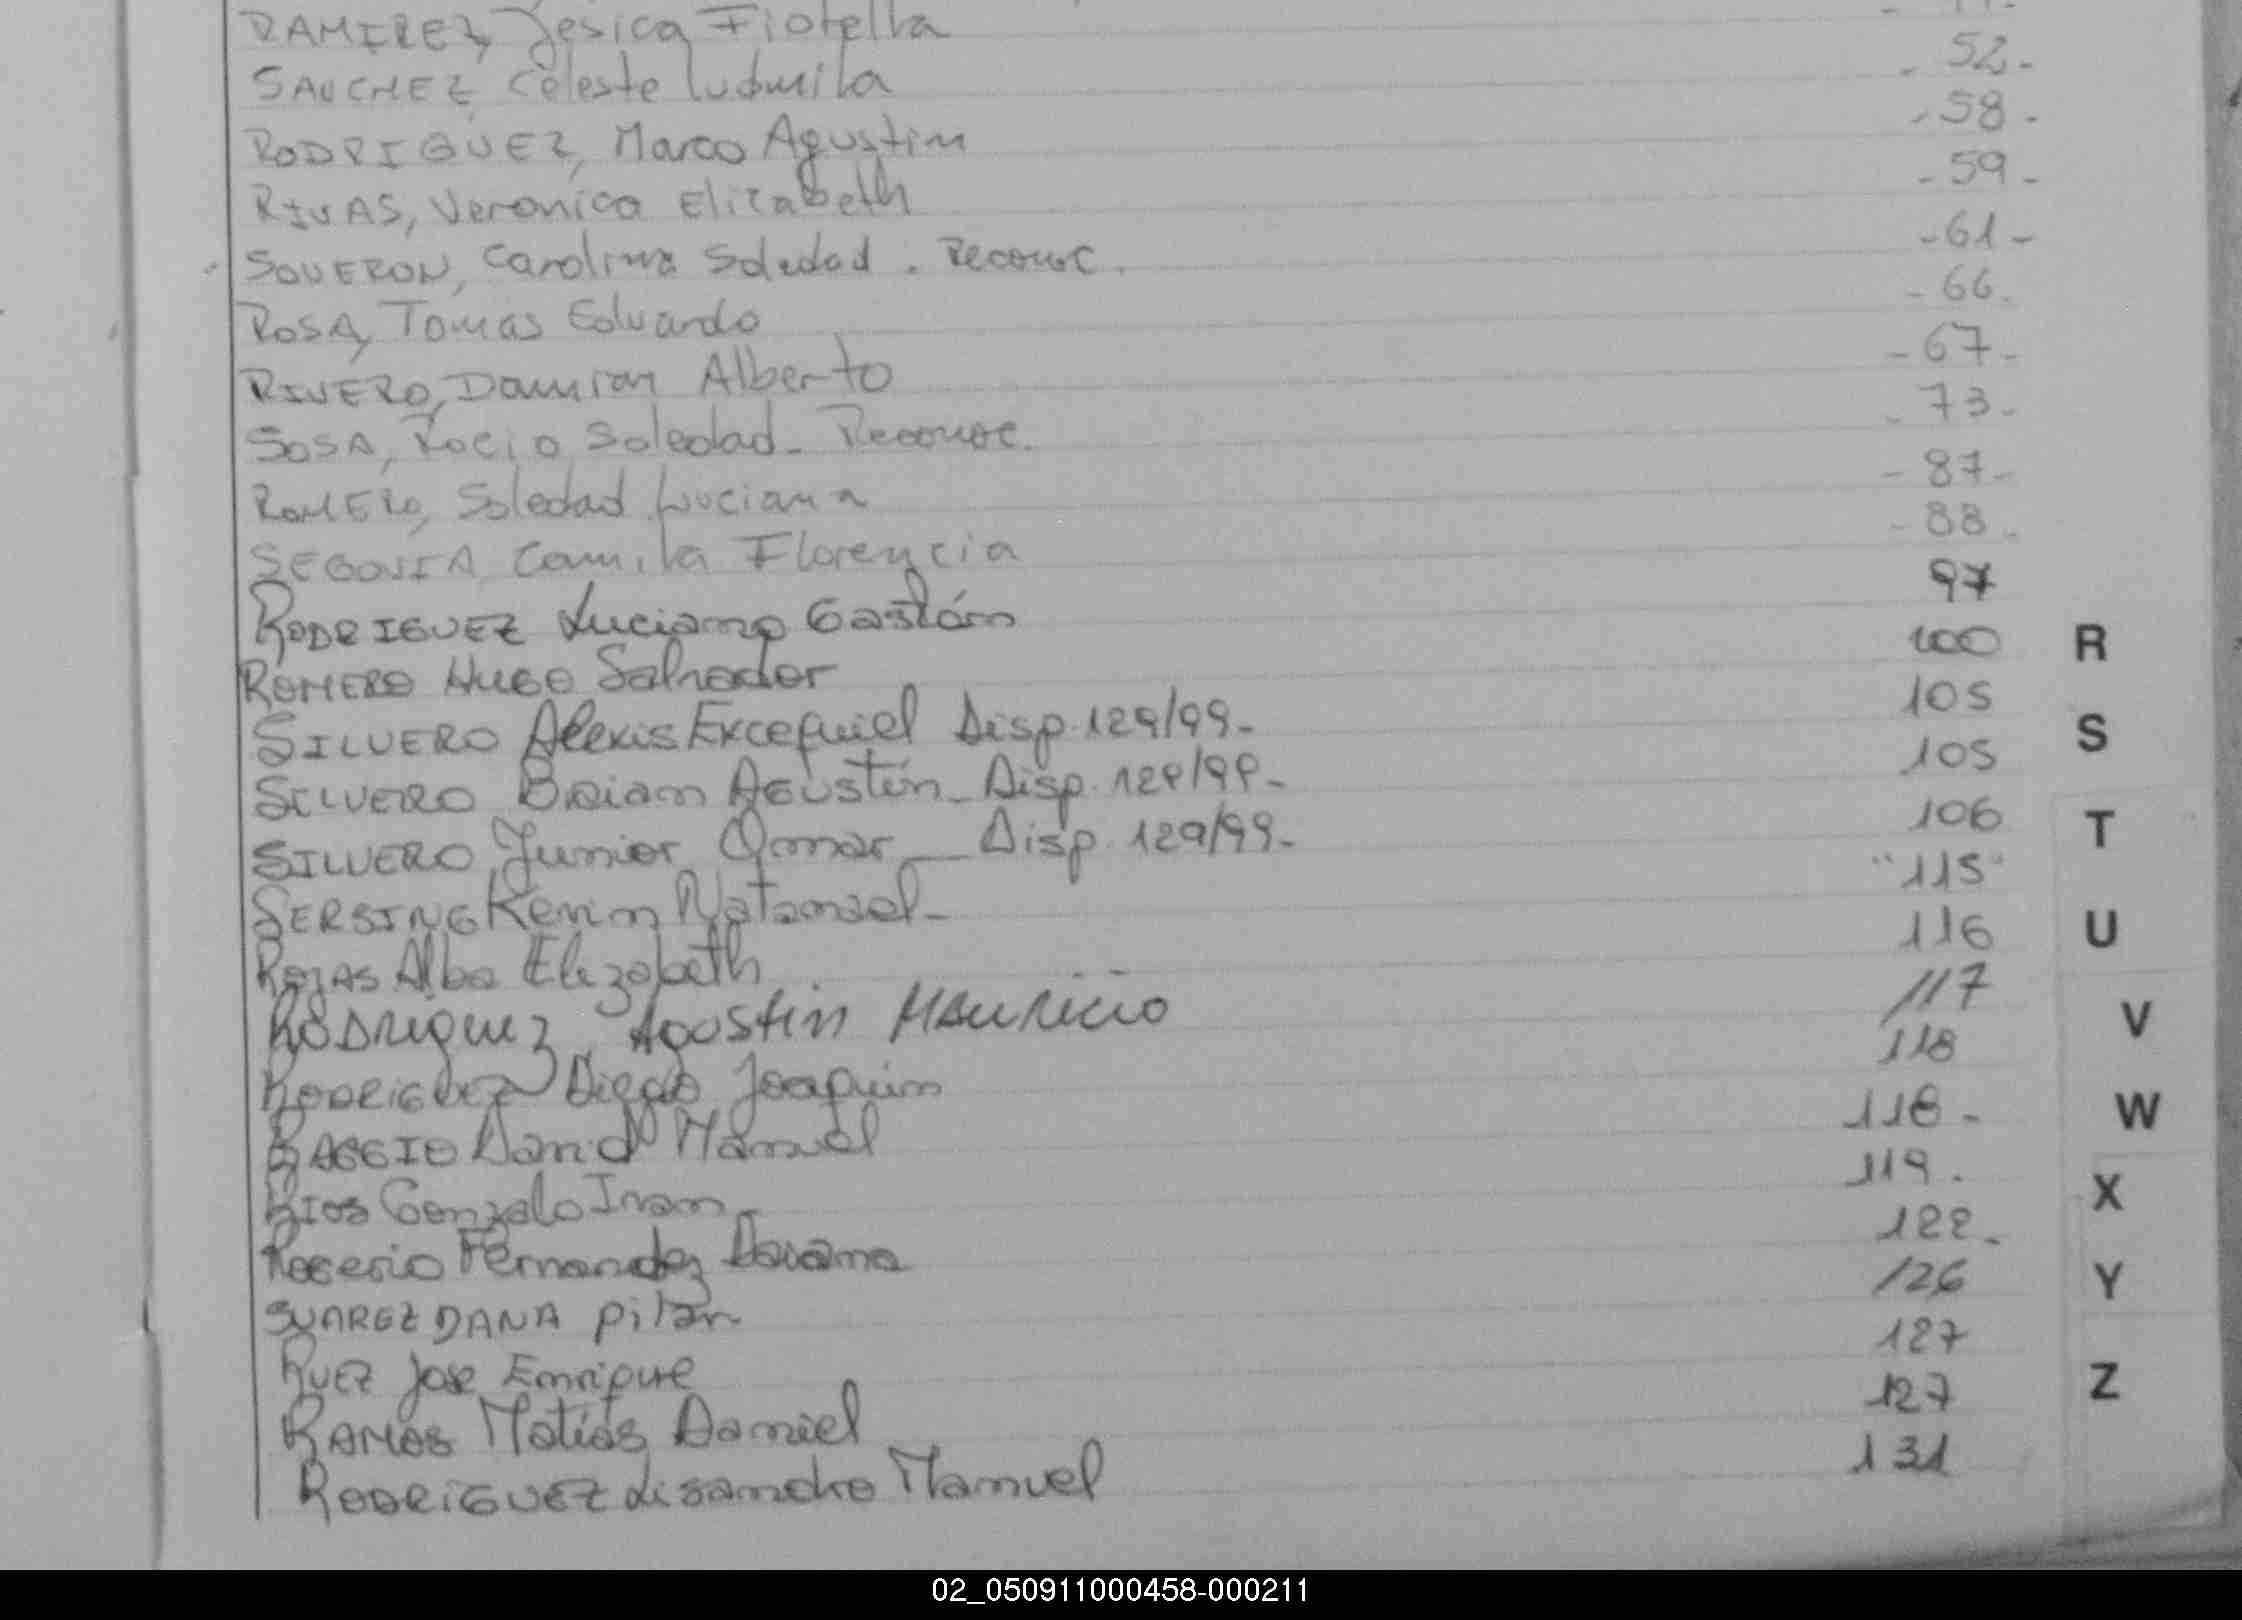 RAMIREZ, Jesica Fiorella
SANCHEZ, Celeste Ludmila - 52 -
RODRIGUEZ, Marco Agustin - 58 -
RIVAS, Veronica Elizabeth - 59 -
SOVERON, Carolina Soledad . Reconoc. - 61 -
ROSA, Tomas Eduardo - 66 .
RIVERO, Damian Alberto - 67 -
SOSA, Rocio Soledad - Reconoc. - 73 -
ROMERO, Soledad Luciana - 87 -
SEGOVIA, Camila Florencia - 88 .
RODRIGUEZ Luciano Gastón 97
ROMERO HUGO Salvador 100
SILVERO Alexis Excequiel Disp. 129/99- 105
SILVERO Brian Agustín - Disp. 129/99- 105
SILVERO Junior Omar - Disp. 129/99- 106
SERSING Kevin Natanael - "115"
ROJAS Alba Elizabeth 116
RODRIGUEZ Agostin MAURICIO 117
RODRIGUEZ Diego Joaquim 118
RAGGIO David Manuel 118 -
RIOS Gonzalo Ivan 119 .
Rogerio Fernandez Daiana 122 -
SUAREZ DANA pilar 126
RUEZ Jose Enrique 127
RAMOS Matías Daniel 127
RODRIGUEZ Lisandro Manuel 131
R
S
T
U
V
W
X
Y
Z
02_050911000458-000211